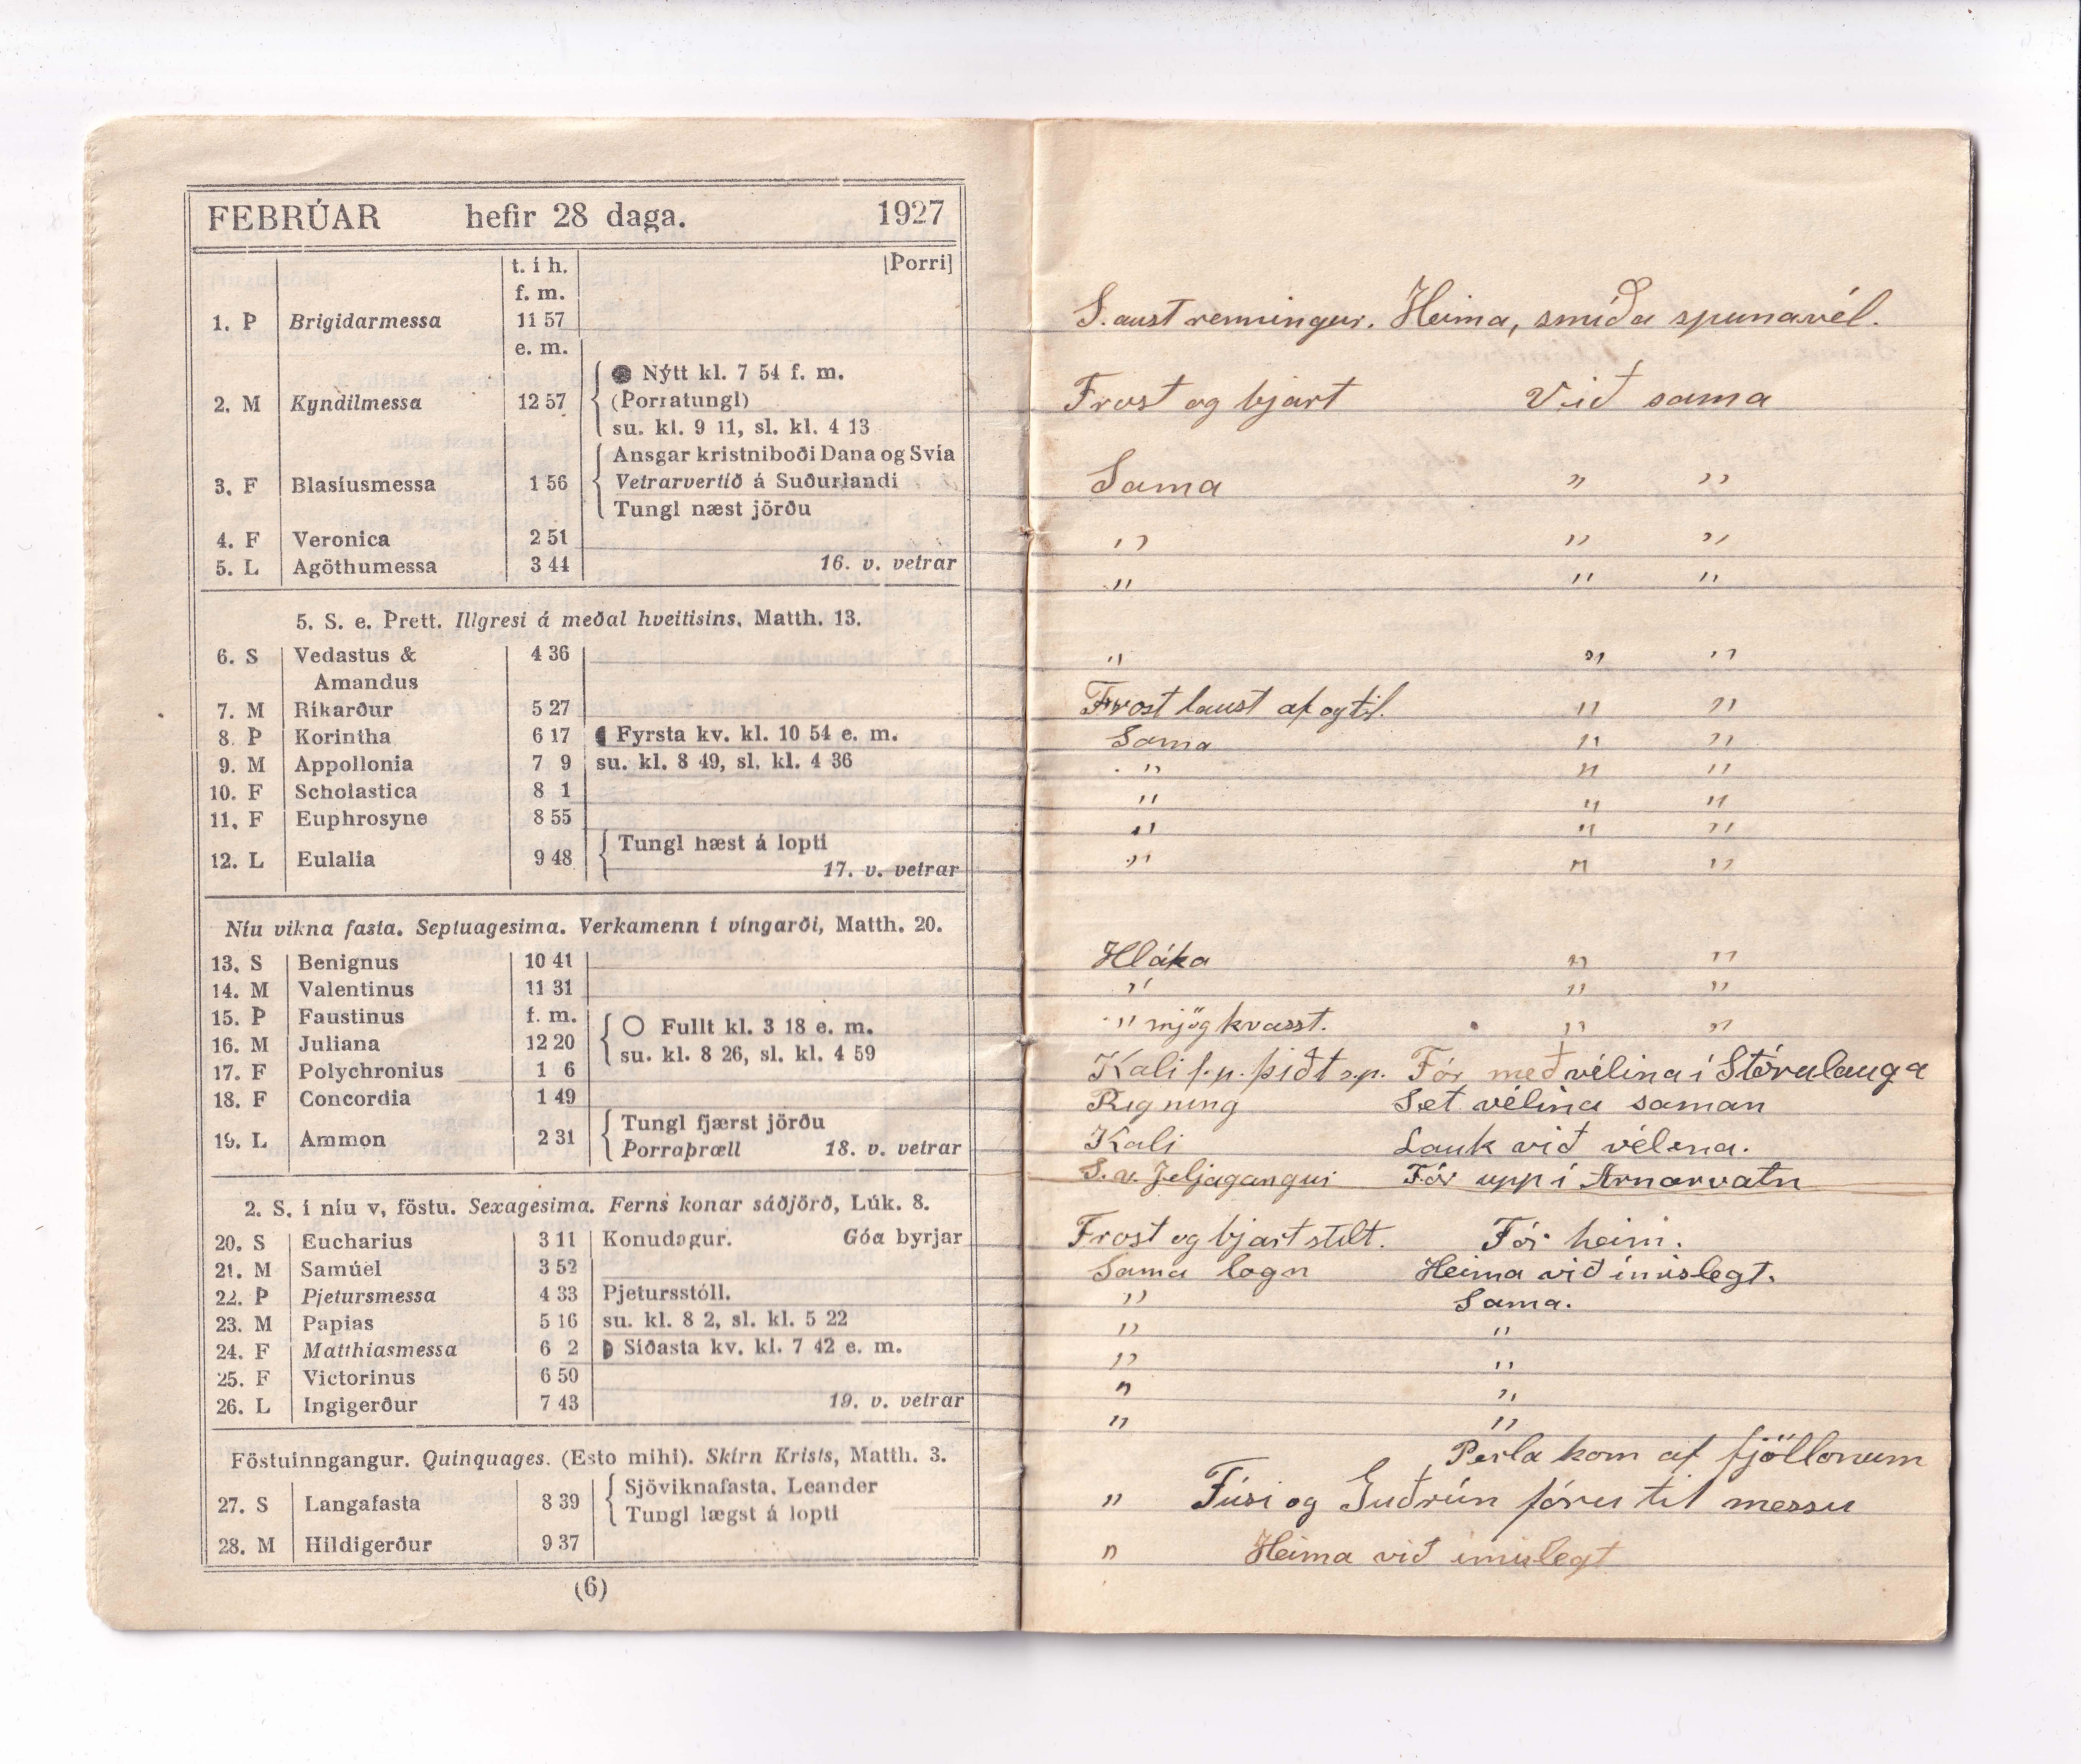 FEBRÚAR hefir 28 daga. 1927
t. í h. [Þorri]
f. m.
1. Þ Brigidarmessa 11 57
e. m.
● Nýtt kl. 7 54 f. m.
2. M Kyndilmessa 12 57 (Þorratungl)
su. kl. 9 11, sl. kl. 4 13
Ansgar kristniboði Dana og Svía
3. F Blasíusmessa 1 56 Vetrarvertíð á Suðurlandi
Tungl næst jörðu
4. F Veronica 2 51
5. L Agöthumessa 3 44 16. v. vetrar
5. S. e. Þrett. Illgresi á meðal hveitisins, Matth. 13.
6. S Vedastus & 4 36
Amandus
7. M Ríkarður 5 27
8. Þ Korintha 6 17 Fyrsta kv. kl. 10 54 e. m.
9. M Appollonia 7 9 su. kl. 8 49, sl. kl. 4 36
10. F Scholastica 8 1
11. F Euphrosyne 8 55
Tungl hæst á lopti
12. L Eulalia 9 48
17. v. vetrar
Níu vikna fasta. Septuagesima. Verkamenn í víngarði, Matth. 20.
13. S Benignus 10 41
14. M Valentinus 11 31
15. Þ Faustinus f. m. ○ Fullt kl. 3 18 e. m.
16. M Juliana 12 20 su. kl. 8 26, sl. kl. 4 59
17. F Polychronius 1 6
18. F Concordia 1 49
Tungl fjærst jörðu
19. L Ammon 2 31 Þorraþræll 18. v. vetrar
2. S. í níu v, föstu. Sexagesima. Ferns konar sáðjörð, Lúk. 8.
20. S Eucharius 3 11 Konudagur. Góa byrjar
21. M Samúel 3 52
22. Þ Pjetursmessa 4 33 Pjetursstóll.
23. M Papias 5 16 su. kl. 8 2, sl. kl. 5 22
24. F Matthiasmessa 6 2 Síðasta kv. kl. 7 42 e. m.
25. F Victorinus 6 50
26. L Ingigerður 7 43 19. v. vetrar
Föstuinngangur. Quinquages. (Esto mihi). Skírn Krists, Matth. 3.
Sjöviknafasta, Leander
27. S Langafasta 8 39
Tungl lægst á lopti
28. M Hildigerður 9 37
(6)
S. aust renningur. Heima, smíða spunavél.
Frost og bjart Við sama
Sama " "
" " "
" " "
" " "
Frost laust af og til. " "
Sama " "
" " "
" " "
" " "
" " "
Hláka " "
" " "
" mjög kvasst. " "
Kali f.p. þiðt s.p. Fór með vélina í Stórulauga
Rigning Set vélina saman
Kali Lauk við vélina.
S.v. Jeljagangur Fór upp í Arnarvatn
Frost og bjart stilt. Fór heim.
Sama logn Heima við ímislegt.
" Sama.
" "
" "
" "
" "
Perla kom af fjöllonum
" Fúsi og Guðrún fóru til messu
" Heima við ímislegt